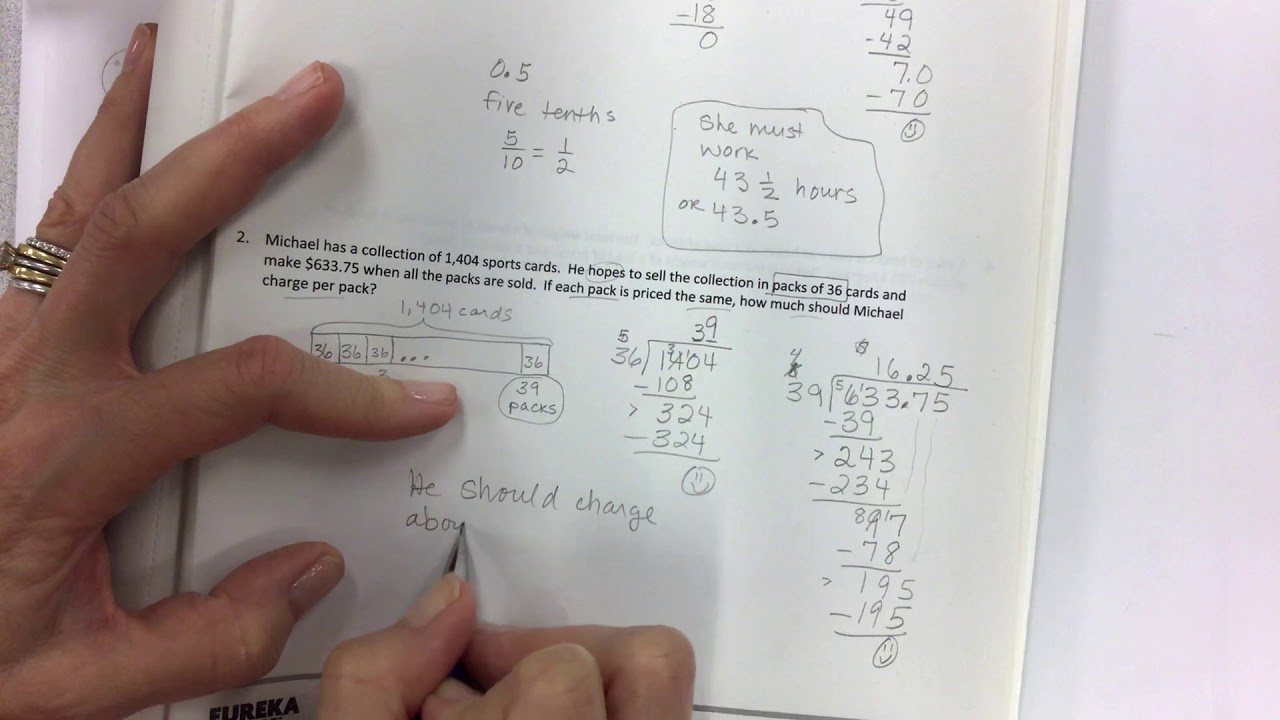 -18
0
49
-42
7.0
-70
0.5
five tenths
5/10 = 1/2
She must
work
43 1/2 hours
or 43.5
2. Michael has a collection of 1,404 sports cards. He hopes to sell the collection in packs of 36 cards and
make $633.75 when all the packs are sold. If each pack is priced the same, how much should Michael
charge per pack?
1,404 cards
36 36 36 ... 36
39
packs
39
5
36 1404
-108
> 324
-324
4
16.25
39 633.75
-39
> 243
-234
97
-78
> 195
-195
He should charge
abou
EUREKA